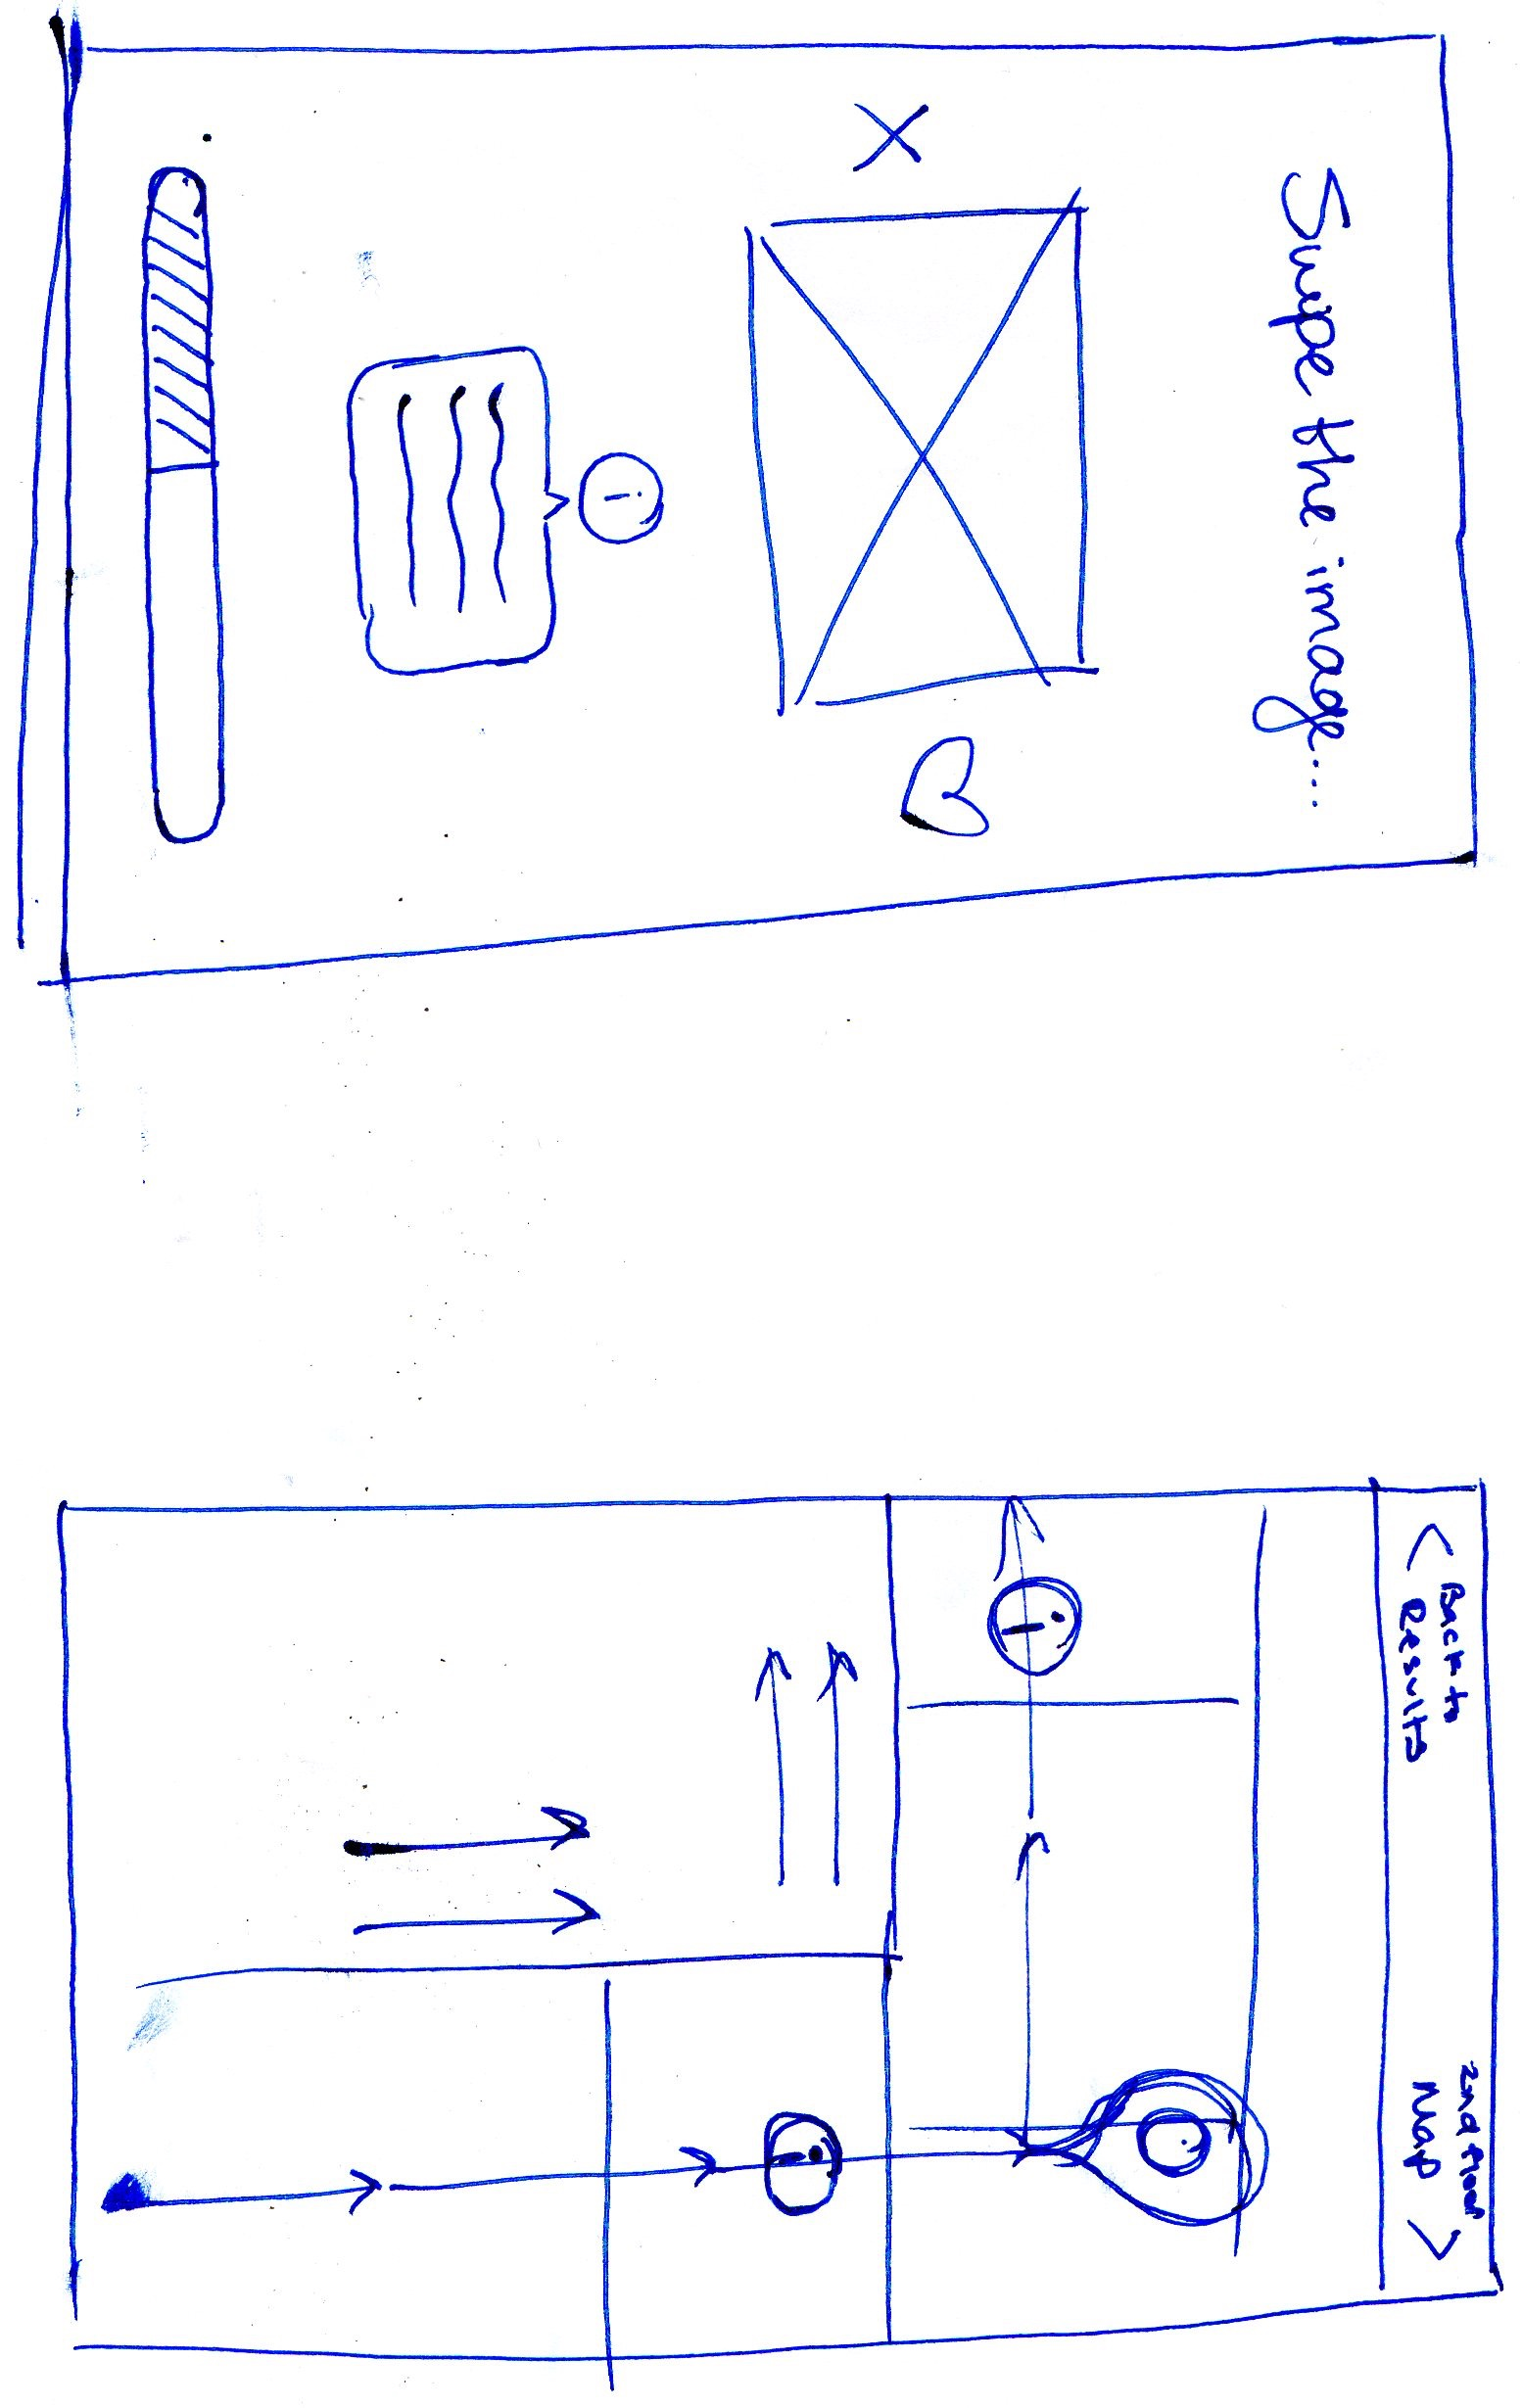 Swipe the image...
X
i
< Back to
Results
2nd floor
Map >
i
i